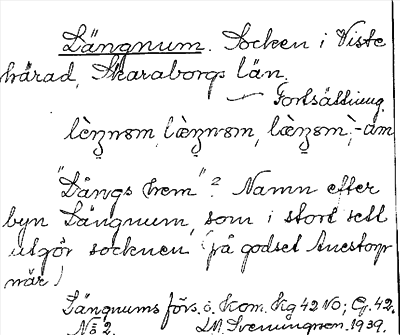 Längnum. Socken i Viste
härad, Skaraborgs län.
Fortsättning.
"Längs hem"? Namn efter
byn Längnum, som i stort sett
utgör socknen (på godset Anestorp
när)
Längnums förs. ö. Kom. Kg 42 NO; G. 42.
No 2. I.M. Svenungson. 1939.